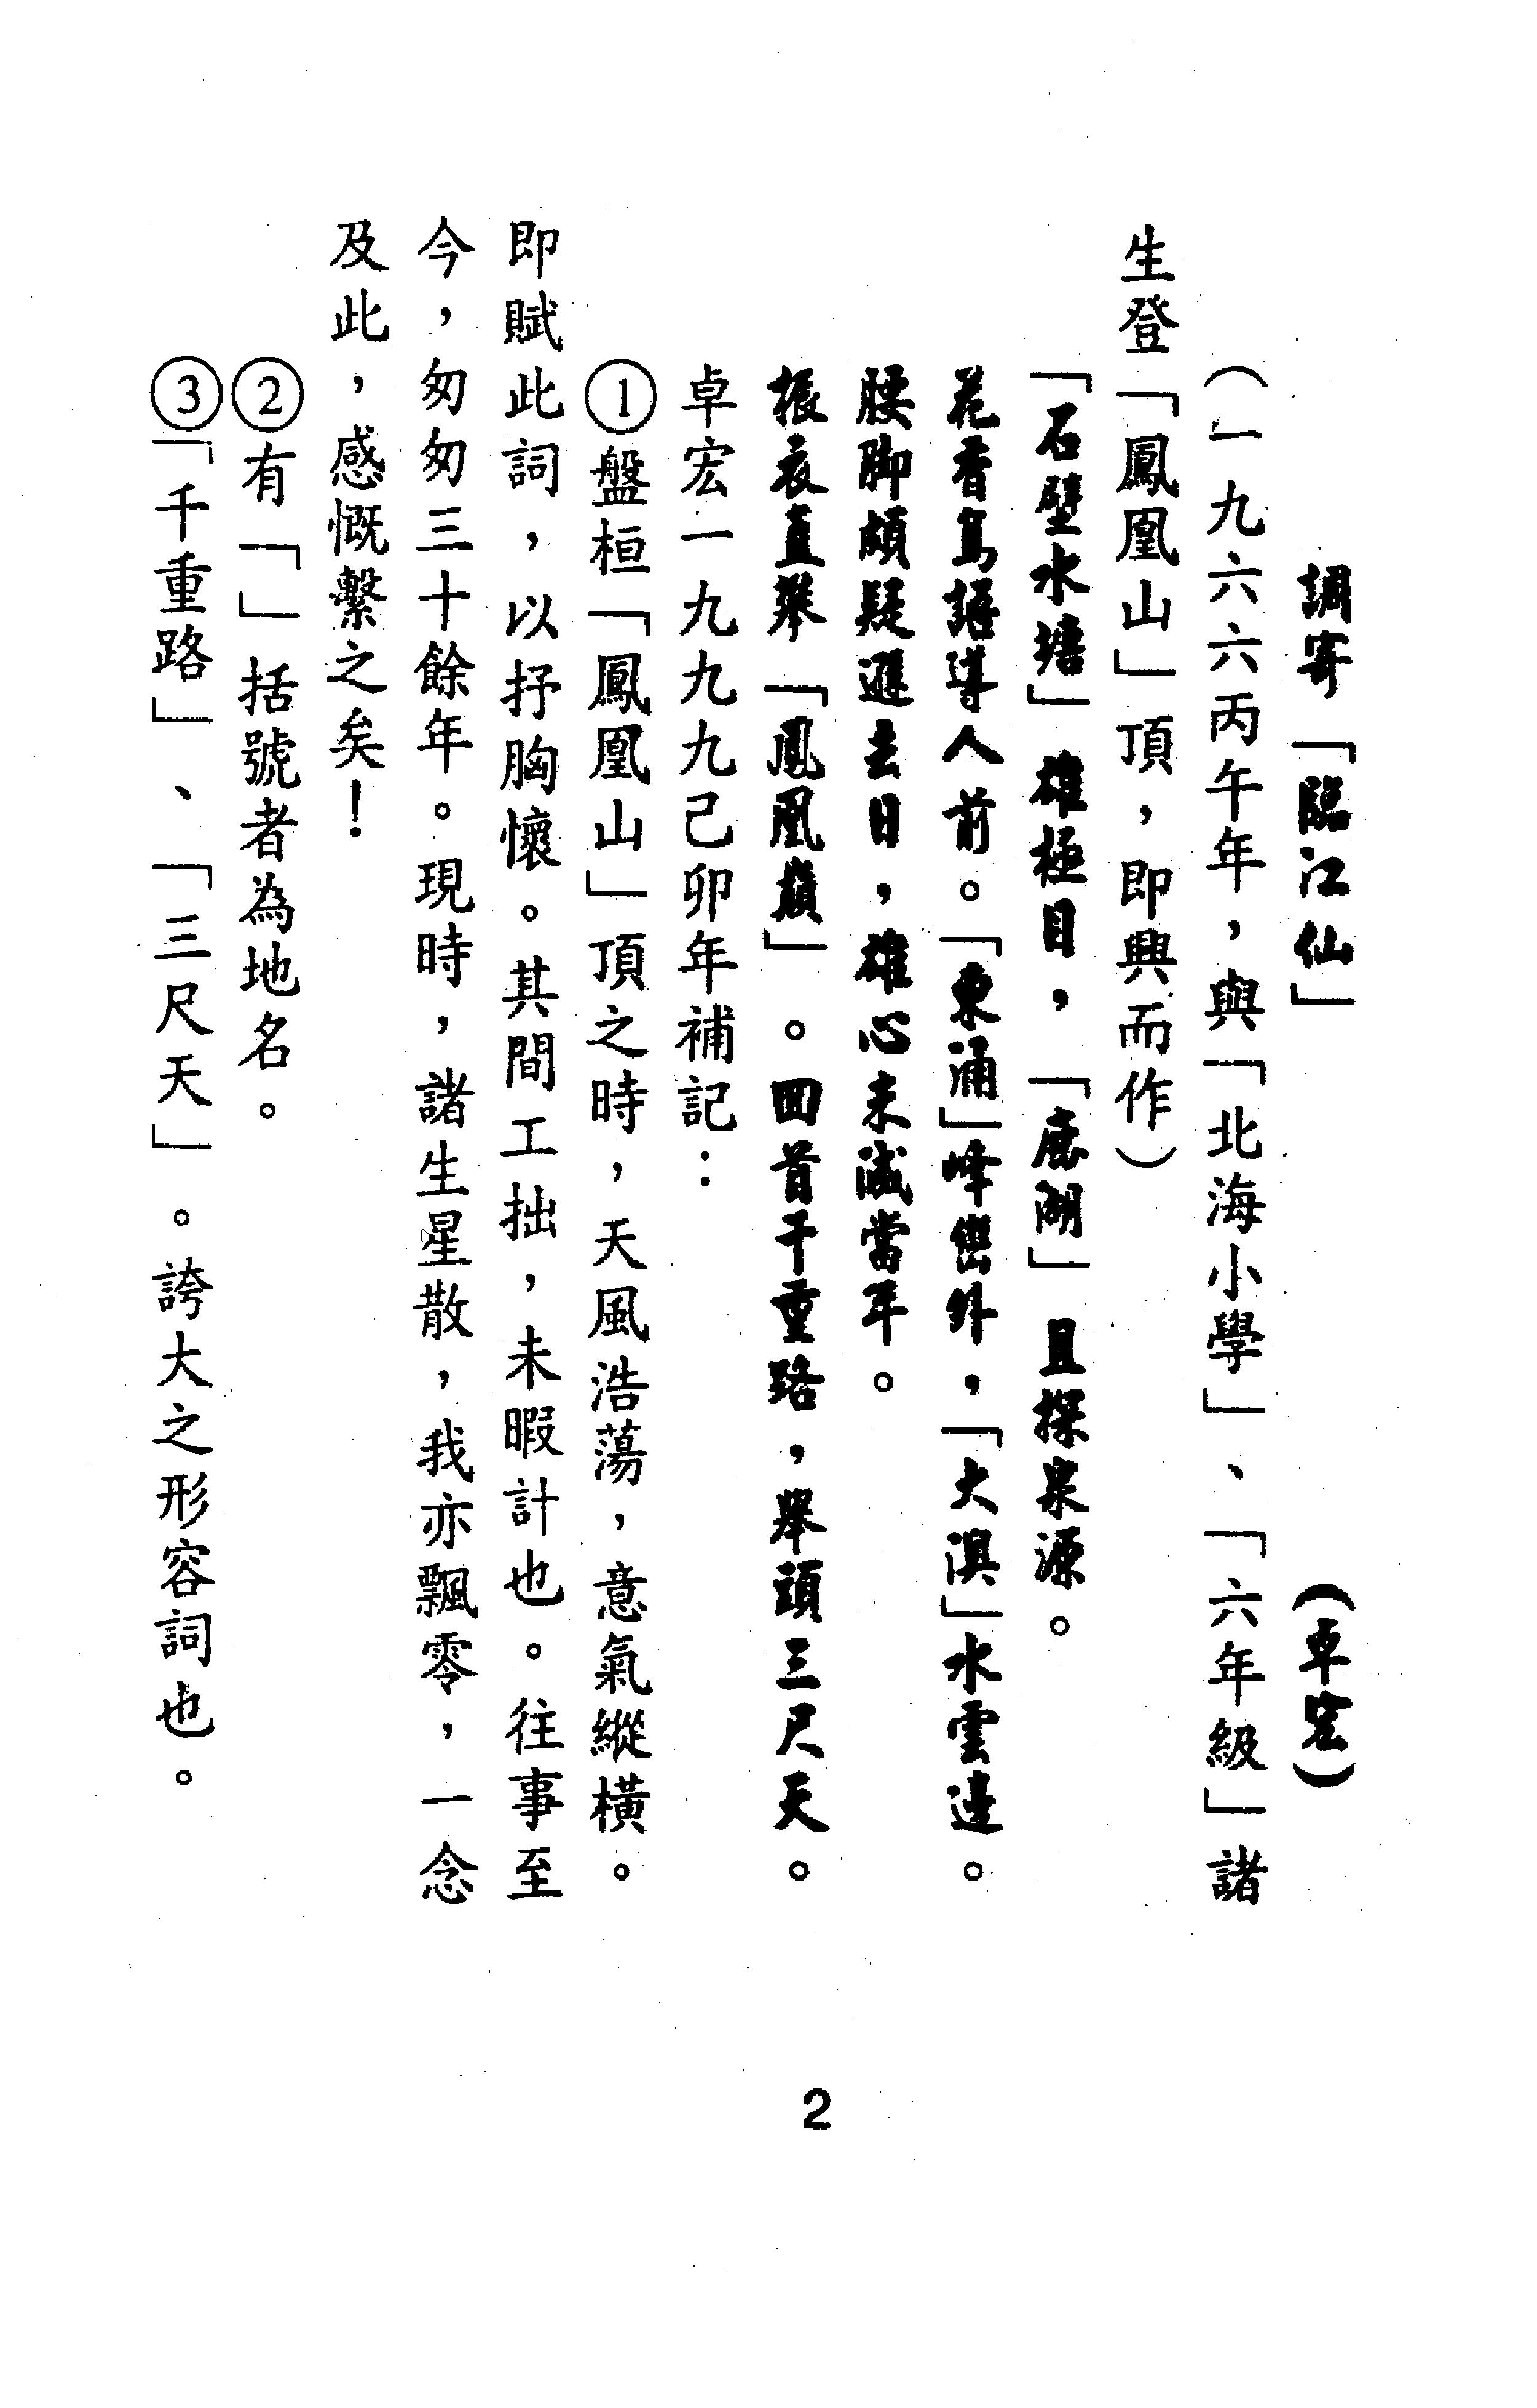 調寄「臨江仙」　（卓宏）
（一九六六丙午年，與「北海小學」、「六年級」諸
生登「鳳凰山」頂，即興而作）
「石壁水塘」雄極目，「鹿湖」且探泉源。
花香鳥語導人前。「東涌」峰巒外，「大澳」水雲邊。
腰脚頗疑遜去日，雄心未減當年。
振衣直舉「鳳凰巔」。回首千重路，舉頭三尺天。
卓宏一九九九己卯年補記：
①盤桓「鳳凰山」頂之時，天風浩蕩，意氣縱橫。
即賦此詞，以抒胸懷。其間工拙，未暇計也。往事至
今，匆匆三十餘年。現時，諸生星散，我亦飄零，一念
及此，感慨繫之矣！
②有「」括號者為地名。
③「千重路」、「三尺天」。誇大之形容詞也。
2